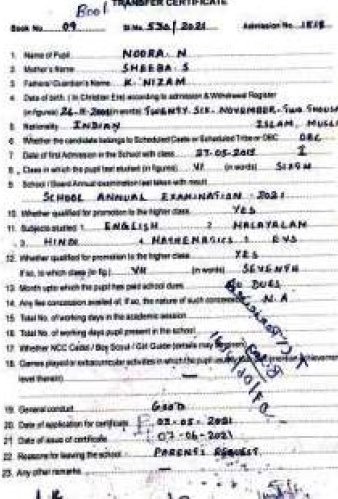 TRANSFER CERTIFICATE
Book No. 09 Sl.No. 530/2021 Admission No. 1818
1. Name of Pupil NOORA. N
2. Mother's Name SHEEBA. S
3. Father's/Guardian's Name K. NIZAM
4. Date of birth (in Christian Era) according to admission & Withdrawal Register
(in figures) 26-11- (in words) TWENTY SIX. NOVEMBER. TWO THOUSA
5. Nationality INDIAN ISLAM, MUSLI
6. Whether the candidate belongs to Scheduled Caste or Scheduled Tribe or OBC OBC
7. Date of first Admission in the School with class 27-05- I
8. Class in which the pupil last studied (in figures) VI (in words) SIXTH
9. School / Board Annual examination last taken with result
SCHOOL ANNUAL EXAMINATION - 2021
10. Whether qualified for promotion to the higher class YES
11. Subjects studied 1. ENGLISH 2. MALAYALAM
3. HINDI 4. MATHEMATICS 5. EVS
12. Whether qualified for promotion to the higher class YES
If so, to which class (in fig.) VII (in words) SEVENTH
13. Month upto which the pupil has paid school dues NO DUES
14. Any fee concession availed of, if so, the nature of such concession N.A
15. Total No. of working days in the academic session
16. Total No. of working days pupil present in the school
17. Whether NCC Cadet / Boy Scout / Girl Guide (details may be given)
18. Games played or extracurricular activities in which the pupil usually achievement
level therein)
19. General conduct GOOD
20. Date of application for certificate 02-05-2021
21. Date of issue of certificate 07-06-2021
22. Reasons for leaving the school PARENTS REQUEST
23. Any other remarks